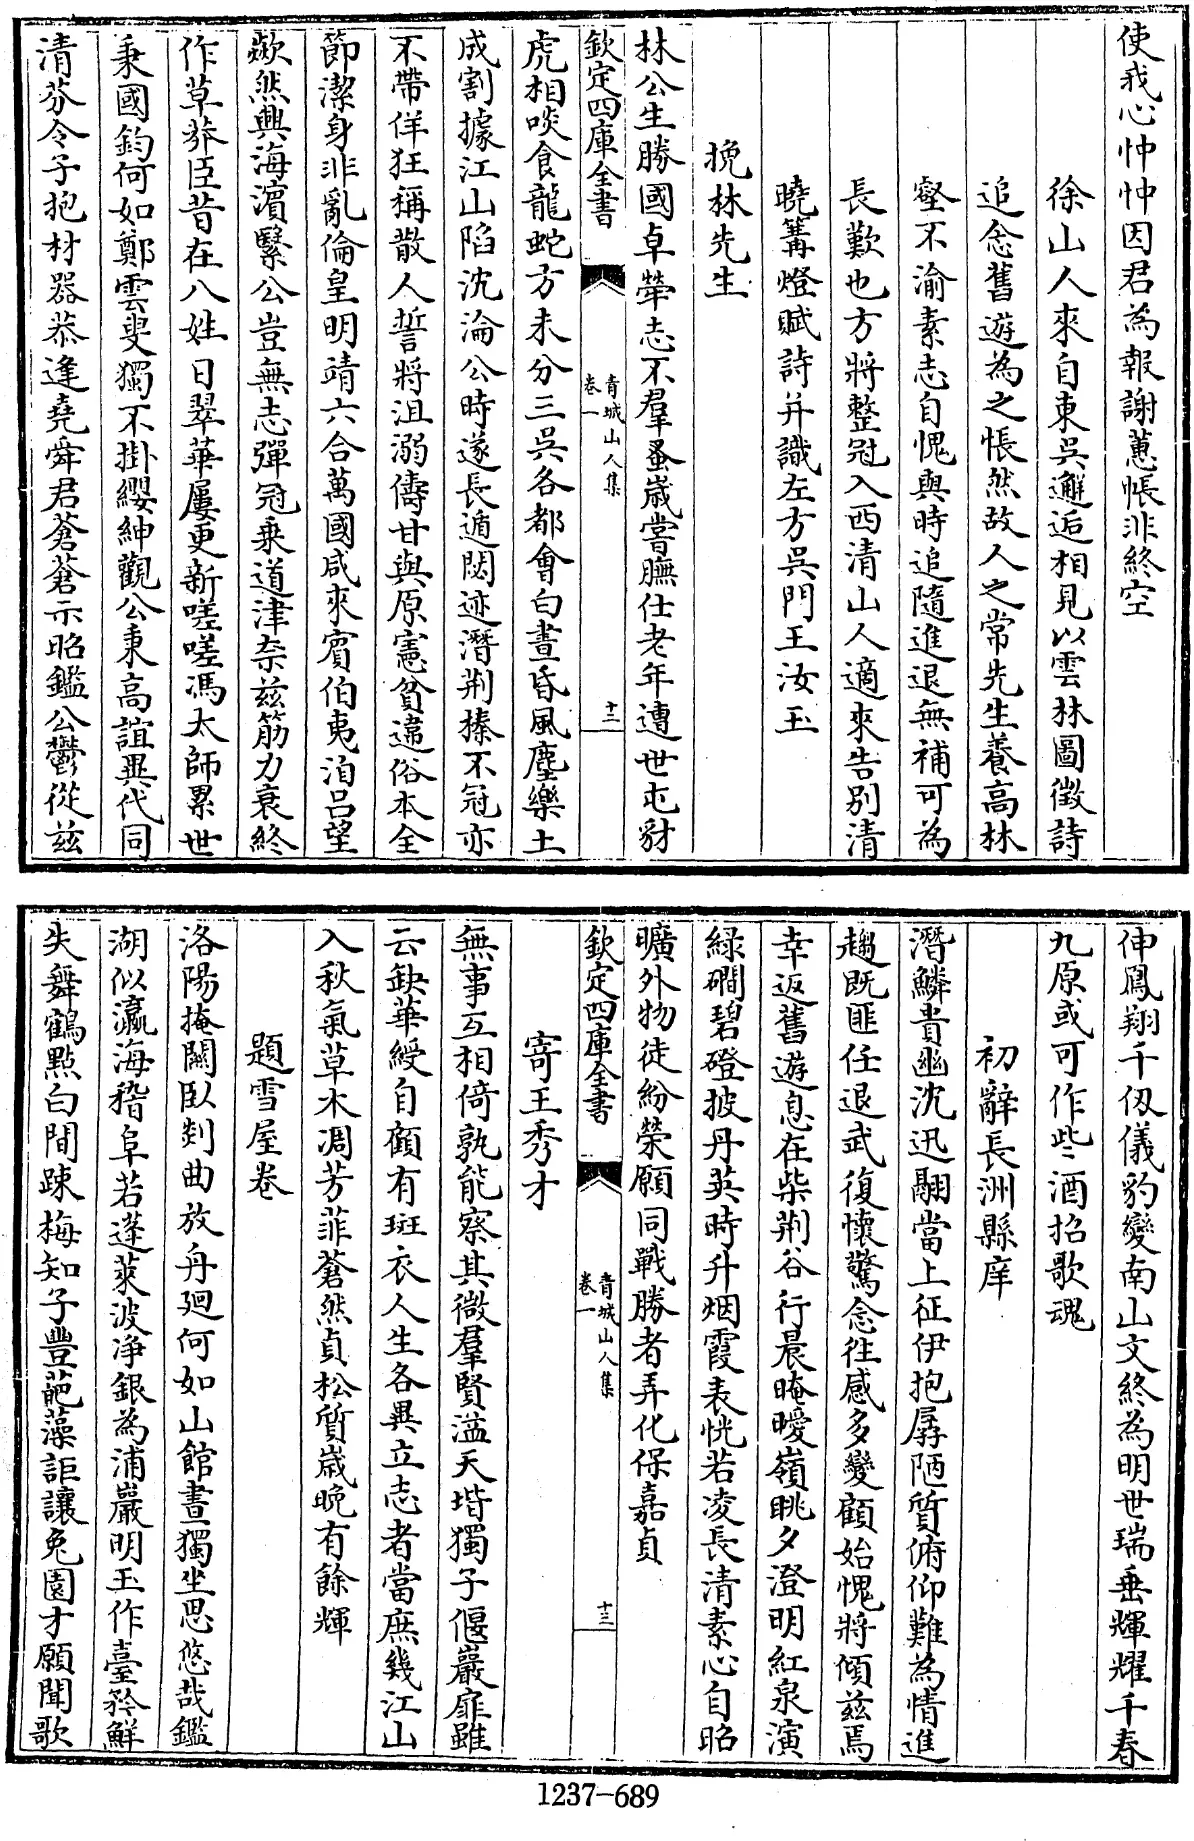 使我心忡忡因君為報謝蕙帳非終空
徐山人來自東吳邂逅相見以雲林圖徵詩
追念舊遊為之悵然故人之常先生養高林
壑不渝素志自愧與時追隨進退無補可為
長歎也方將整冠入西清山人適來告別清
曉篝燈賦詩并識左方吳門王汝玉
挽林先生
林公生勝國卓犖志不羣蚤歲嘗膴仕老年遭世屯豺
欽定四庫全書
青城山人集
卷一
十二
虎相啖食龍蛇方未分三吳各都會白晝昏風塵樂土
成割據江山陷沈淪公時遂長遁閟迹潛荆榛不冠亦
不帶佯狂稱散人誓將沮溺儔甘與原憲貧違俗本全
節潔身非亂倫皇明靖六合萬國咸來賓伯夷洎呂望
歘然興海濵繄公豈無志彈冠乗道津奈兹筋力衰終
作草莽臣昔在八姓日翠華屢更新嗟嗟馮太師累世
秉國鈞何如鄭雲叟獨不掛纓紳觀公秉高誼異代同
清芬令子抱材器恭逢堯舜君蒼蒼示昭鑑公鬱從兹
伸鳳翔千仭儀豹變南山文終為明世瑞垂輝耀千春
九原或可作些酒招歌魂
初辭長洲縣庠
潛鱗貴幽沈迅翮當上征伊抱孱陋質俯仰難為情進
趨既匪任退武復懷驚念往感多變顧始愧將傾兹焉
幸返舊遊息在柴荆谷行晨晻曖嶺眺夕澄明紅泉演
綠磵碧磴披丹英時升烟霞表恍若凌長清素心自昭
曠外物徒紛榮願同戰勝者弄化保嘉貞
欽定四庫全書
青城山人集
卷一
十三
寄王秀才
無事互相倚孰能察其微羣賢溢天堦獨子偃巖扉雖
云缺華綬自顧有斑衣人生各異立志者當庶幾江山
入秋氣草木凋芳菲蒼然貞松質歲晚有餘輝
題雪屋卷
洛陽掩關臥剡曲放舟廻何如山館晝獨坐思悠哉鑑
湖似瀛海稽阜若蓬萊波净銀為浦巖明玉作臺矜鮮
失舞鶴點白間踈梅知子豐葩藻詎讓兔園才願聞歌
1237-689